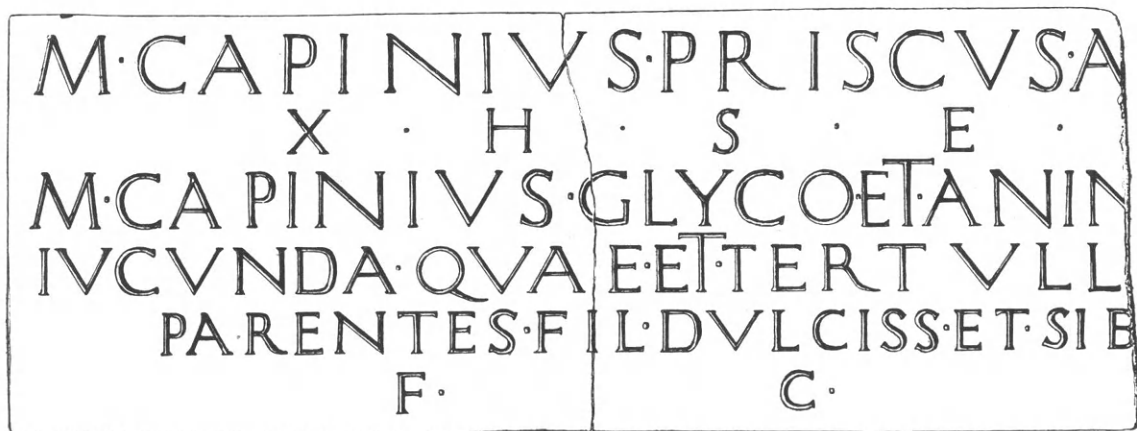 M·CAPINIVS·PRISCVS·A
X · H · S · E ·
M·CAPINIVS·GLYCO·ET·ANIN
IVCVNDA·QVAE·ET·TERTVLL
PARENTES·FIL·DVLCISS·ET·SIB
F· C·